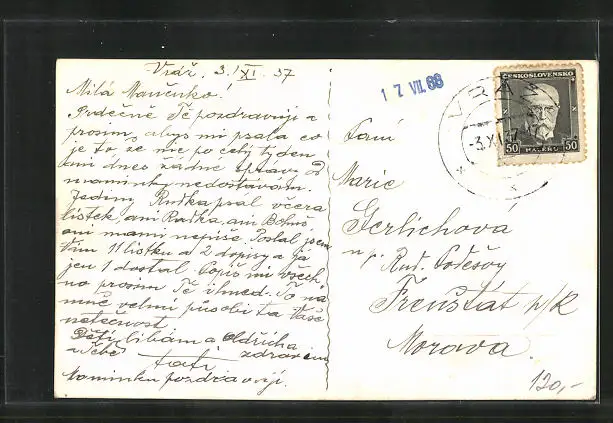 Vráž, 3./XI. 37
Milá Mařenko!
Srdečně Tě pozdravuji a
prosím, abys mi psala co
je to, že nic po celý týden
ani dnes žádné zprávy od
maminky nedostávám.
Jediný Ruďka psal včera
lístek, ani Radka, ani Bohuš
ani mami nepíše. Poslal jsem
Vám 11 lístků a 2 dopisy a já
jen 1 dostal. Popiš mi všech
no prosím Tě ihned. To na
mně velmi působí ta Vaše
netečnost.
Děti líbám a Oldřicha
a Tebe zdravím
tati
Maminku pozdravuji.
17 VII. 68
VRÁŽ
-3.XI.37
ČESKOSLOVENSKO
50 HALÉŘŮ 50
Paní
Marie
Gerlichová
Rud.
Frenštát p/R
Morava.
120,-